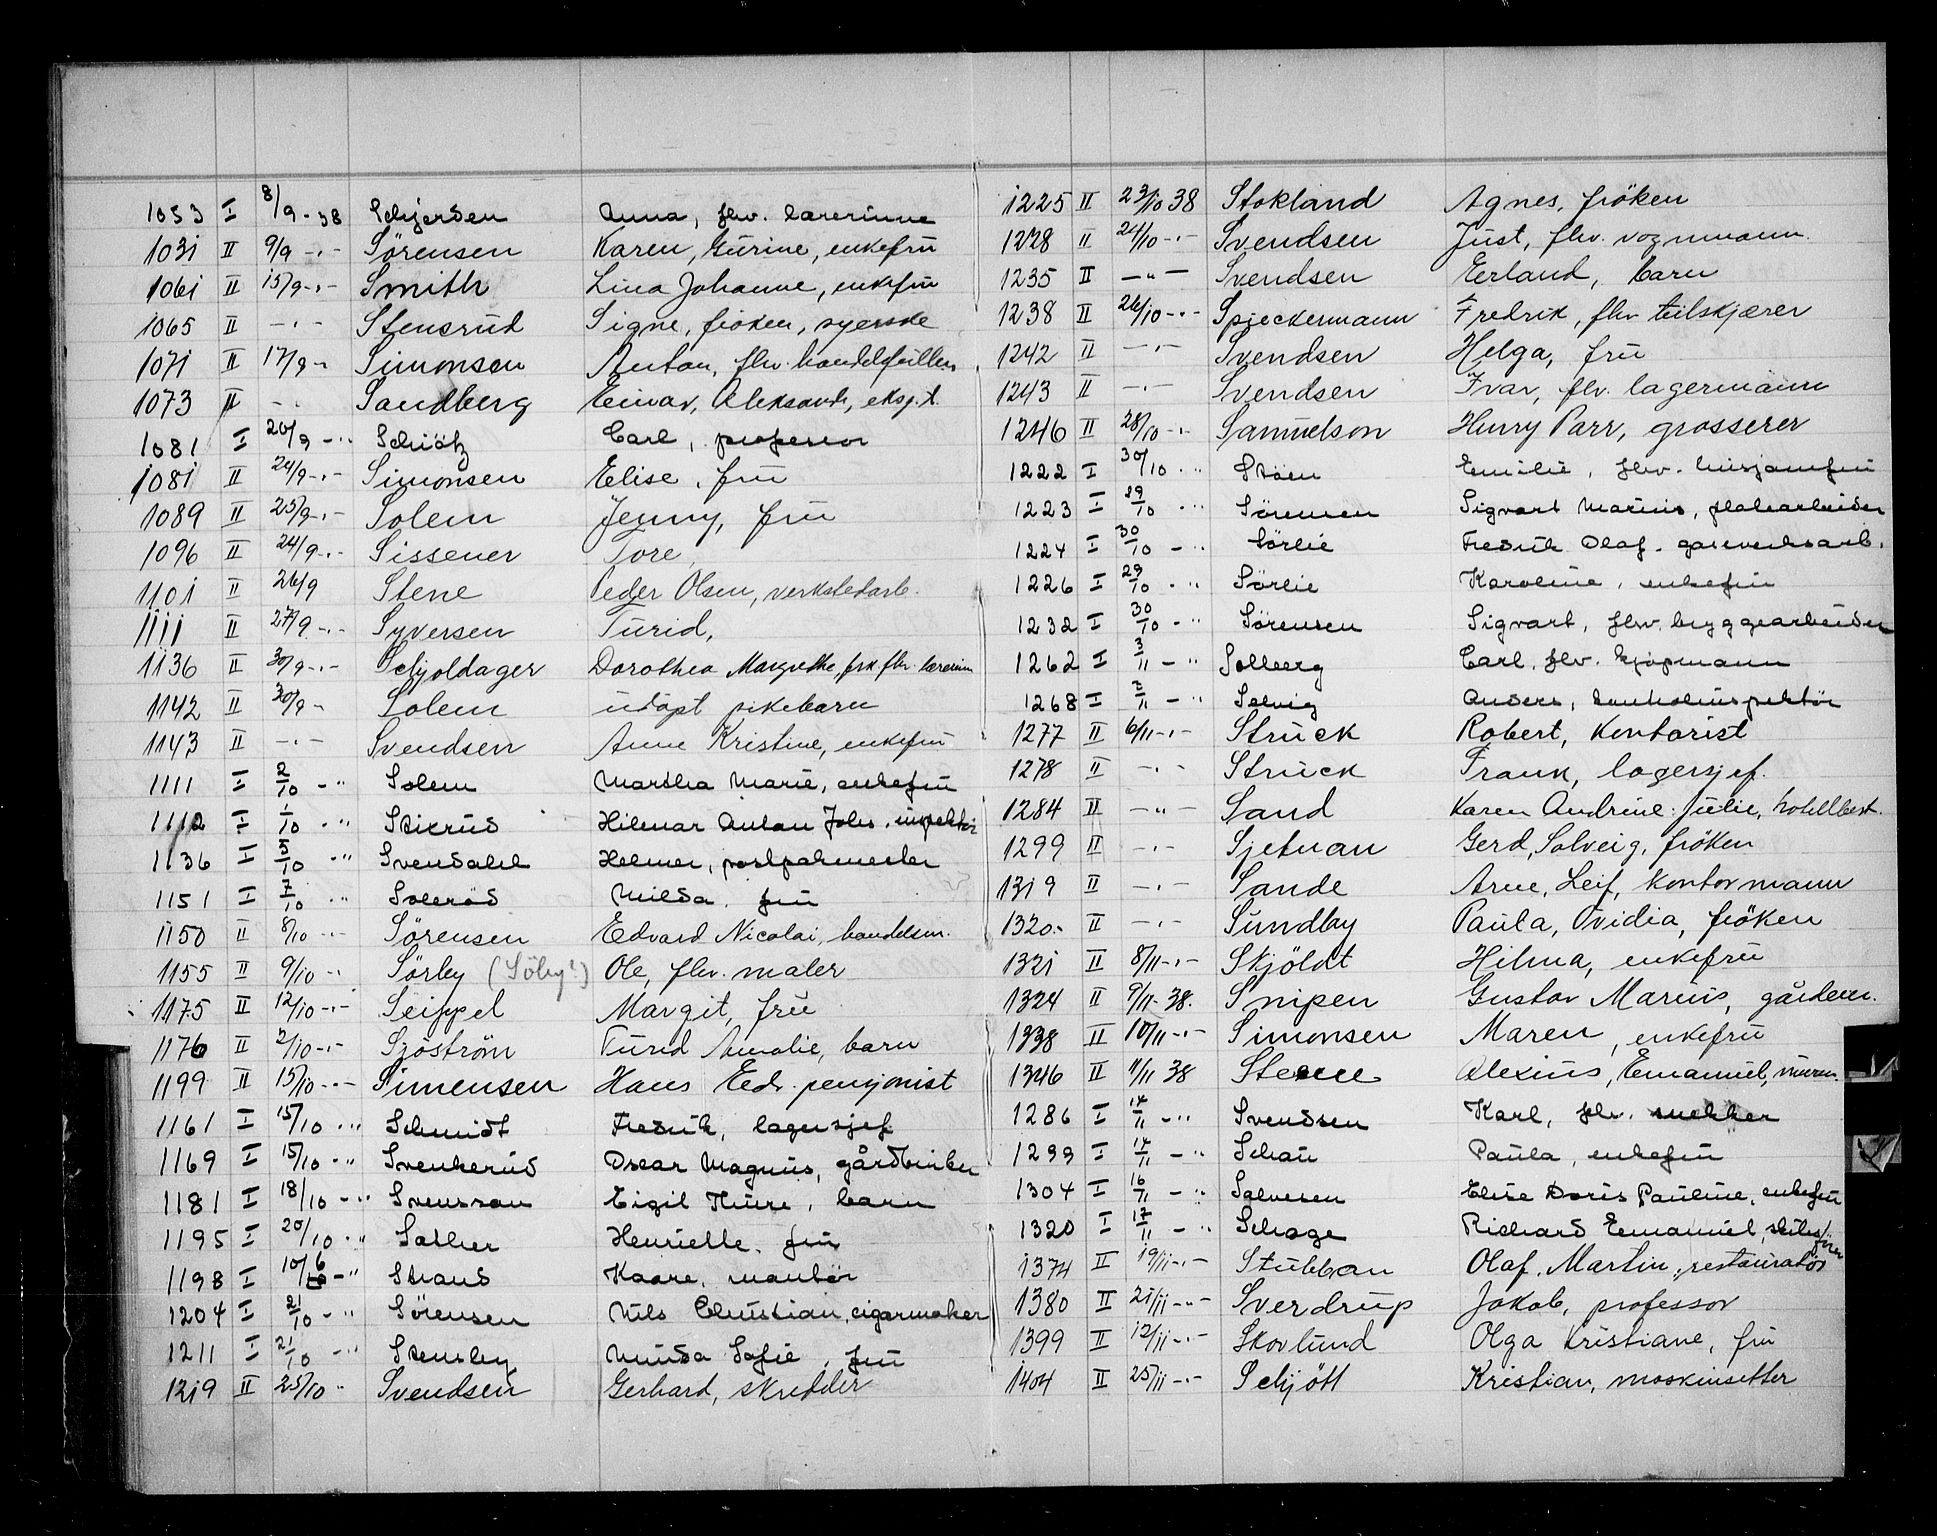 1053 I 8/9-38 Schjersen Anna, fhv. lærerinne
1031 II 9/9 -"- Sørensen Karen, Gurine, enkefrü
1061 II 15/9 -"- Smith Lina Johanne, enkefrü
1065 II -"- Stensrud Signe, frøken, syerske
1071 II 17/9 - Simonsen Anton, fhv.
1073 II - Sandberg Einar, Aleksandr, eksp.
1081 I 20/9 -"- Schiötz Carl, professor
1081 II 24/9 -"- Simonsen Elise, frü
1089 II 25/9 -"- Solem Jenny, frü
1096 II 24/9 -"- Sissener Tore,
1101 II 26/9 Stene Peder Olsen, verkstedarb.
1111 II 27/9 -"- Syversen Türid,
1136 II 30/9 -"- Schjoldager Dorothea Margrethe, frk. fhv. lærerinn
1142 II 30/9 - Solem udøpt pikebarn
1143 II -"- Svendsen Anne Kristine, enkefrü
1111 I 2/10 -" Solem Martha Marie, enkefrü
1112 I 1/10 -" Stikrud Hilmar Anton Johs. inspektör
1136 I 5/10 -" Svendahl Helmer, postpakmester
1151 I 7/10 " Solerød Milda, frü
1150 II 8/10 -"- Sørensen Edvard Nicolai, handelsm.
1155 II 9/10 -" Sørby (Söby?) Ole, fhv. maler
1175 II 12/10 -"- Seippel Margit, frü
1176 II 2/10 -"- Sjöström Türid Amalie, barn
1199 II 15/10 -"- Simensen Hans Edv. pensjonist
1161 I 15/10 -" Schmidt Fredrik, lagersjef
1169 I 15/10 -" Svenkerud Oscar Magnus,
1181 I 18/10 -" Svensson Eigil Thure, barn
1195 I 20/10 -" Sather Henriette, frü
1198 I 10/6 -" Strand Kaare, mantör
1204 I 21/10 -" Sörensen Nils Christian, cigarmaker
1211 I 21/10 -" Stensby Minda Sofie, frü
1219 II 25/10 " Svendsen Gerhard, skredder
1225 II 23/10 38 Stokland Agnes, fröken
1228 II 24/10 -"- Svendsen Just, fhv. vognmann.
1235 II -"- Svendsen Erland, barn
1238 II 26/10 -"- Spjeckermann Fredrik, fhv. tilskjærer
1242 II -"- Svendsen Helga, frü
1243 II -"- Svendsen Ivar, fhv. lagermann
1246 II 28/10 -" Samuelson Henry Parr, grosserer
1222 I 30/10 " Støen Emilie, fhv. husjomfru
1223 I 29/10 " Sörensen Sigvart Marius, platearbeider
1224 I 30/10 -" Sörlie Fredrik Olaf. gasverksarb.
1226 I 29/10 " Sörlie Karoline, enkefrü
1232 I 30/10 -" Sörensen Sigvart, fhv. bryggearbeider
1262 I 3/11 -" Solberg Carl, fhv. kjøpmann
1268 I 2/11 -" Selvig Anders,
1277 II 6/11 -"- Struck Robert, Kontorist
1278 II -"- Struck Frank, lagersjef.
1284 II -"- Sand Karen Andrine Julie, hotellbest.
1299 II -"- Sjetnan Gerd, Solveig, fröken
1319 II -"- Sande Arne, Leif, kontormann
1320 II -"- Sundby Paula, Ovidia, fröken
1321 II 8/11 -"- Skjöldt Hilma, enkefrü
1324 II 9/11-38. Snipen Gustav Marius, gårdeier.
1338 II 10/11 -"- Simonsen Maren, enkefrü
1346 II 11/11 38 Steene Alexius, Emanuel, murm.
1286 I 14/11 -" Svendsen Karl, fhv. snekker
1299 I 14/11 -" Schau Paula, enkefrü
1304 I 16/11 -" Salvesen Elise Doris Pauline, enkefrü
1320 I 17/11 -" Schage Richard Emanuel, skibsfører
1374 II 19/11 -"- Stubban Olaf, Martin, restauratör
1380 II 21/11 -"- Sverdrup Jakob, professor
1399 II 12/11 -"- Skovlund Olga Kristiane, frü
1404 II 25/11 -"- Schjött Kristian, maskinsetter